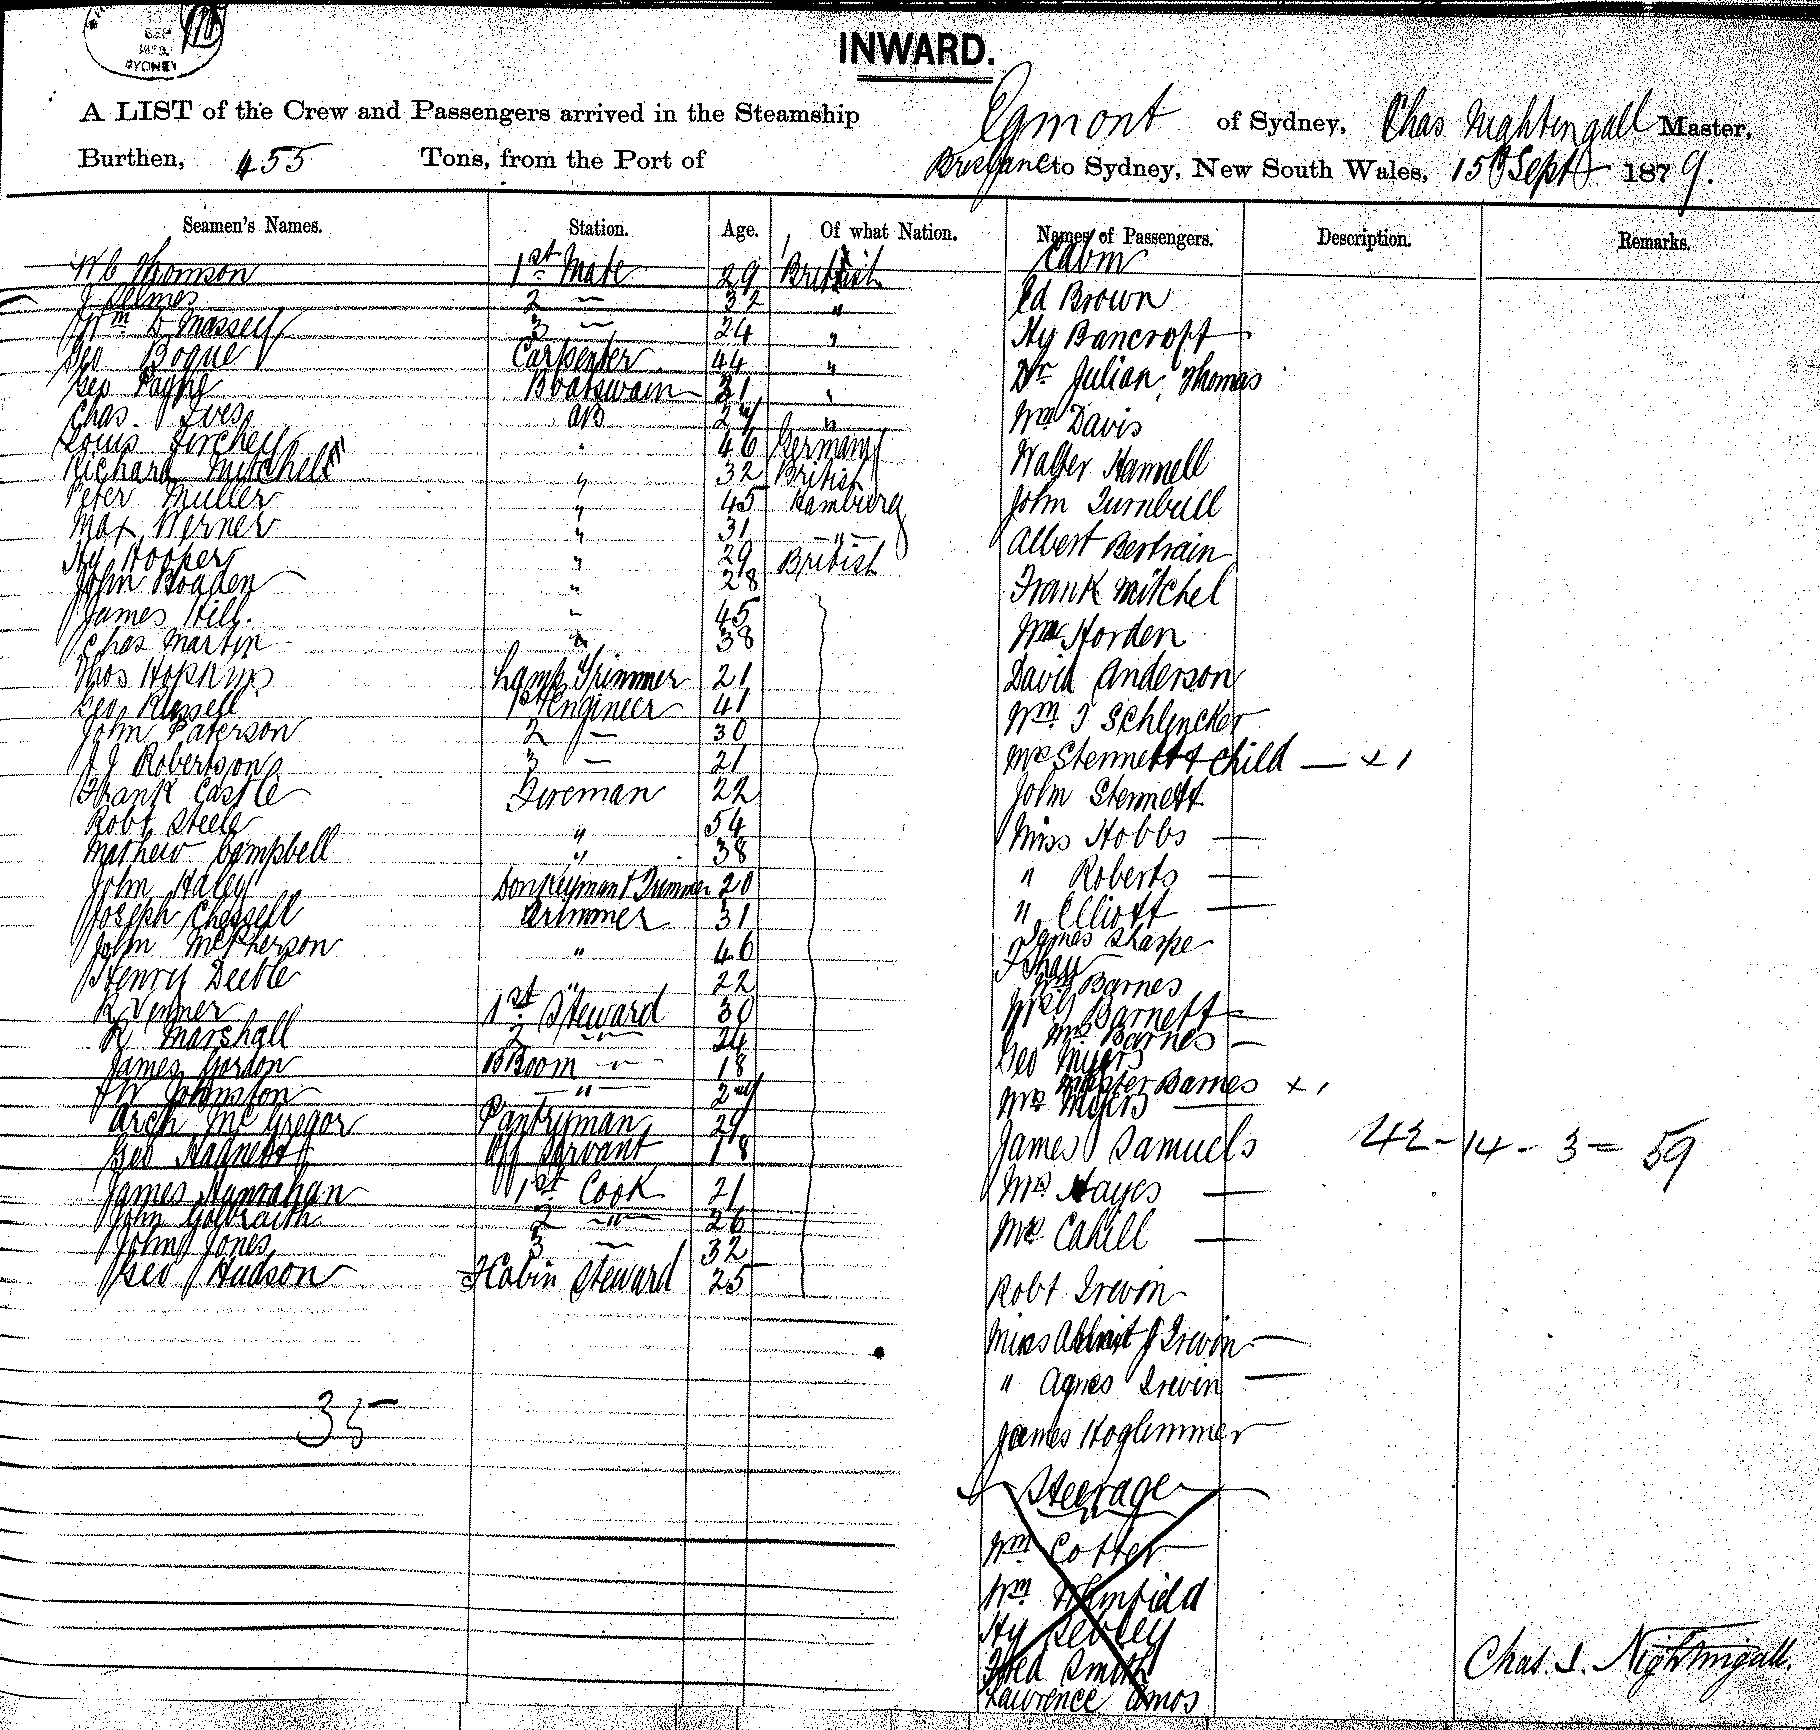 SEP
SYDNEY
INWARD.
A LIST of the Crew and Passengers arrived in the Steamship Egmont of Sydney, Chas Nightingall Master,
Burthen, 455 Tons, from the Port of Brisbane to Sydney, New South Wales, 15th Sept 1879.
Seamen's Names. Station. Age. Of what Nation. Names of Passengers. Description. Remarks.
W C Thomson 1st Mate 29 British
J Selmes 2 — 32 "
Wm D Massey 3 — 24 "
Geo Bogue Carpenter 44 "
Geo Payne Boatswain 31 "
Chas. Ives AB "
Louis " 46 Germany
Richard Mitchell " 32 British
Peter Muller " 45 Hamburg
Max Werner " 31 — " —
Hy Hooper " 29 British
John Boaden " 28
James Hill. " 45
Chas Martin " 38
Thos Hopkins Lamp Trimmer 21
Geo Russell 1st Engineer 41
John Paterson 2 — 30
J J Robertson 3 — 21
Frank Castle Fireman 22
Robt Steele " 54
Mathew Campbell " 38
John Haley Donkeyman & Trimmer 20
Joseph Chessell Trimmer 31
John McPherson " 46
Henry Deeble " 22
R Venner 1st Steward 30
R Marshall 2 — 24
James Gordon B Room — " — 18
J W Johnston — " —
Arch McGregor Pantryman 29
Geo Off Servant 18
James Hanrahan 1st Cook 21
John Galbraith 2 — " — 26
John Jones 3 — 32
Geo Hudson F Cabin Steward 25
35
Cabin
Ed Brown
Hy Bancroft
Dr Julian Thomas
Wm Davis
Walter Hannell
John Turnbull
Albert Bertrain
Frank Mitchel
Wm Horden
David Anderson
Wm J Schlencker
Mrs Stennett & Child — x 1
John Stennett
Miss Hobbs —
" Roberts —
" Elliott —
James Sharpe
J Shay
Barnes
Mrs Barnett —
Mrs Barnes —
Geo Myers
Master Barnes x 1
Mrs Myers —
James Samuels
42 - 14 - 3 = 59
Mrs Hayes —
Mrs Cahill —
Robt Irwin
Miss J Irwin —
" Agnes Irwin —
James Hoglemmer
Steerage
Wm Cotter
Wm
Hy
Fred Smith
Lawrence Amos
Chas. J. Nightingall.